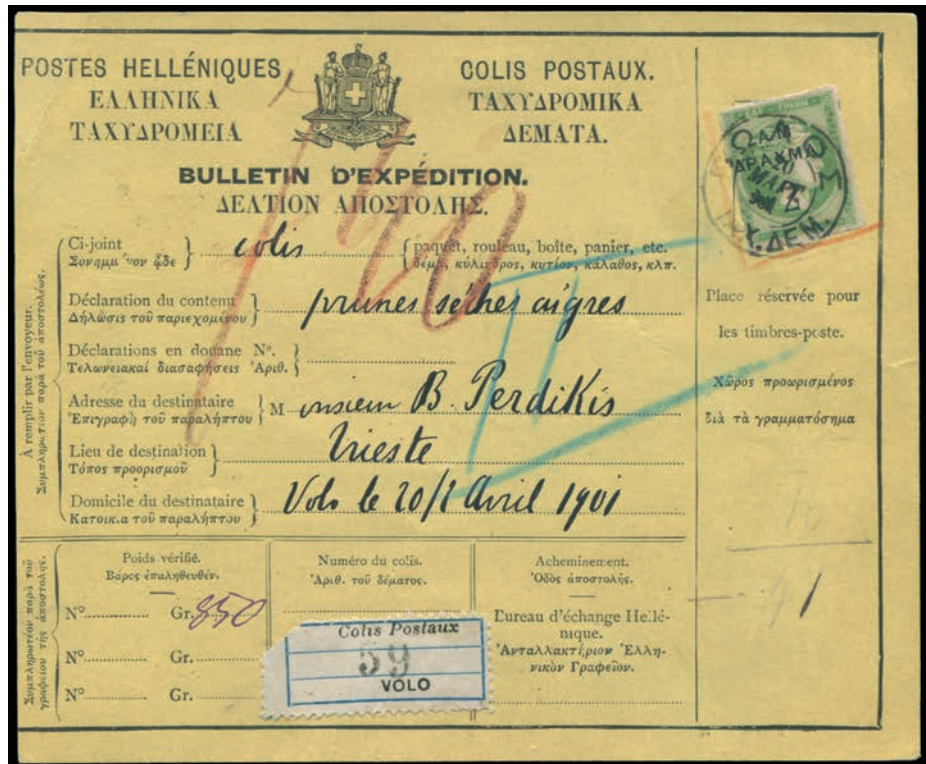 POSTES HELLÉNIQUES
ΕΛΛΗΝΙΚΑ
ΤΑΧΥΔΡΟΜΕΙΑ
COLIS POSTAUX.
ΤΑΧΥΔΡΟΜΙΚΑ
ΔΕΜΑΤΑ.
BULLETIN D'EXPÉDITION.
ΔΕΛΤΙΟΝ ΑΠΟΣΤΟΛΗΣ.
À remplir par l'envoyeur.
Συμπληρωτέον παρὰ τοῦ ἀποστολέως.
Ci-joint colis (paquet, rouleau, boîte, panier, etc.
ᾧδε δέμα, κύλινδρος, κυτίον, κάλαθος, κλπ.
Déclaration du contenu prunes séches aigres
Δήλωσις τοῦ περιεχομένου
Déclarations en douane Nº.
Τελωνειακαὶ διασαφήσεις Ἀριθ.
Adresse du destinataire M onsieur B. Perdikis
Ἐπιγραφὴ τοῦ παραλήπτου
Lieu de destination Trieste
Τόπος προορισμοῦ
Domicile du destinataire Volo le 20/2 Avril 1901
Κατοικ.α τοῦ παραλήπτου
ΑΜ
ΔΡΑΧΜΑ
20
ΜΑΡΤ
2
ΔΕΜ.
Place réservée pour
les timbres-poste.
Χῶρος προωρισμένος
διὰ τὰ γραμματόσημα
Συμπληρωτέον παρὰ τοῦ
γραφείου τῆς ἀποστολῆς.
Poids vérifié.
Βάρος ἐπαληθευθέν.
Nº Gr. 850
Nº Gr.
Nº Gr.
Numéro du colis.
Ἀριθ. τοῦ δέματος.
Colis Postaux
59
VOLO
Acheminement.
Ὁδὸς ἀποστολῆς.
Bureau d'échange Hellé-
nique.
Ἀνταλλακτήριον Ἑλλη-
νικὸν Γραφεῖον.